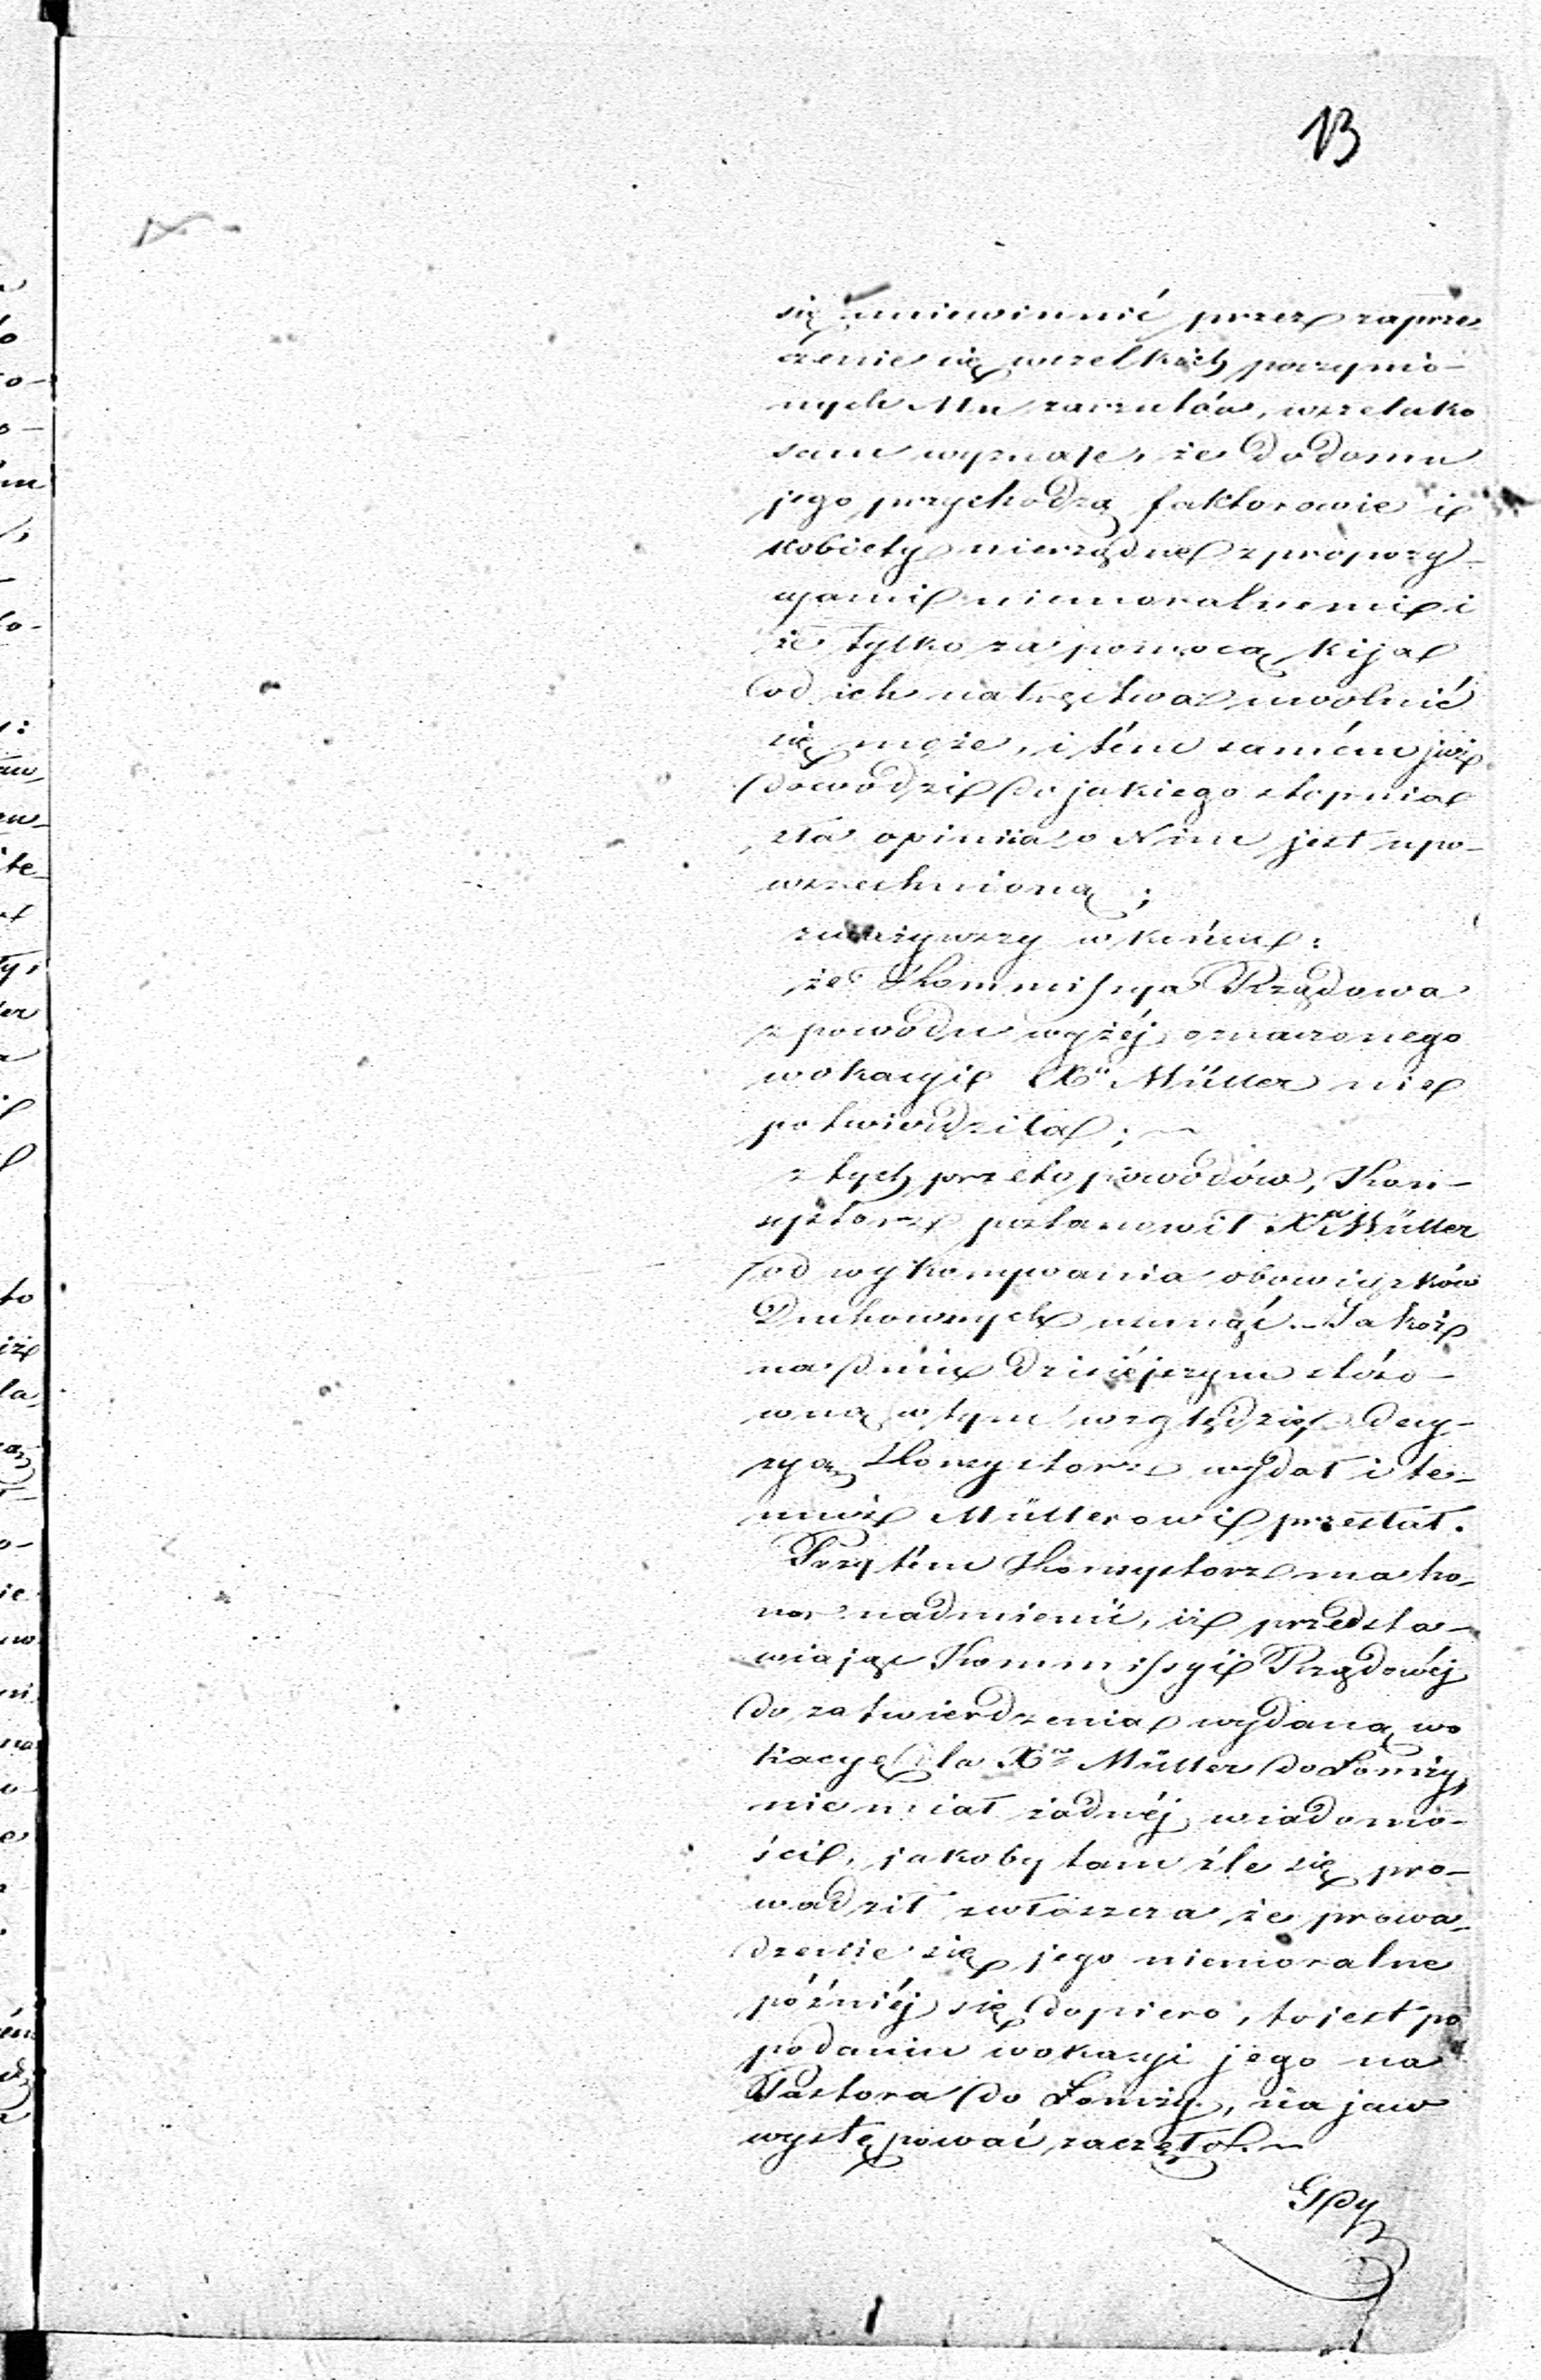 13
się uniewinnić przez zaprze-
czenie się wszelkich poczynio-
nych Mu zarzutów, wszelako
sam wyznaje, że do domu
jego przychodzą faktorowie i
kobiety nierządne z propozy-
cyami niemoralnemi i
że tylko za pomocą kija
od ich natręctwa uwolnić
się może, i tém samém już
dowodzi do jakiego stopnia
zła opiniia o Nim jest upo-
wszechnioną;
zważywszy w końcu:
że Kommissya Rządowa
z powodu wyżéj oznaczonego
wokacyi Xa Müller nie
potwierdziła;
z tych przeto powodów, Kon-
systorz postanowił Xa Müller
od wykonywania obowiązków
Duchownych usunąć. Jakoż
na dniu dzisiejszym stóso-
wną w tym względzie decy-
zyą Konsystorz wydał i te-
muż Müllerowi przesłał.
Przytém Konsystorz ma ho-
nor nadmienić, iż przedsta-
wiając Kommissyi Rządowéj
do zatwierdzenia wydaną wo
kacyę dla Xa Müller do Łomży,
nie miał żadnéj wiadomo-
ści, jakoby tam źle się pro-
wadził zwłaszcza że prowa-
dzenie się jego niemoralne
późniéj się dopiero, to jest po
podaniu wokacyi jego na
Pastora do Łomży, na jaw
występować zaczęło.